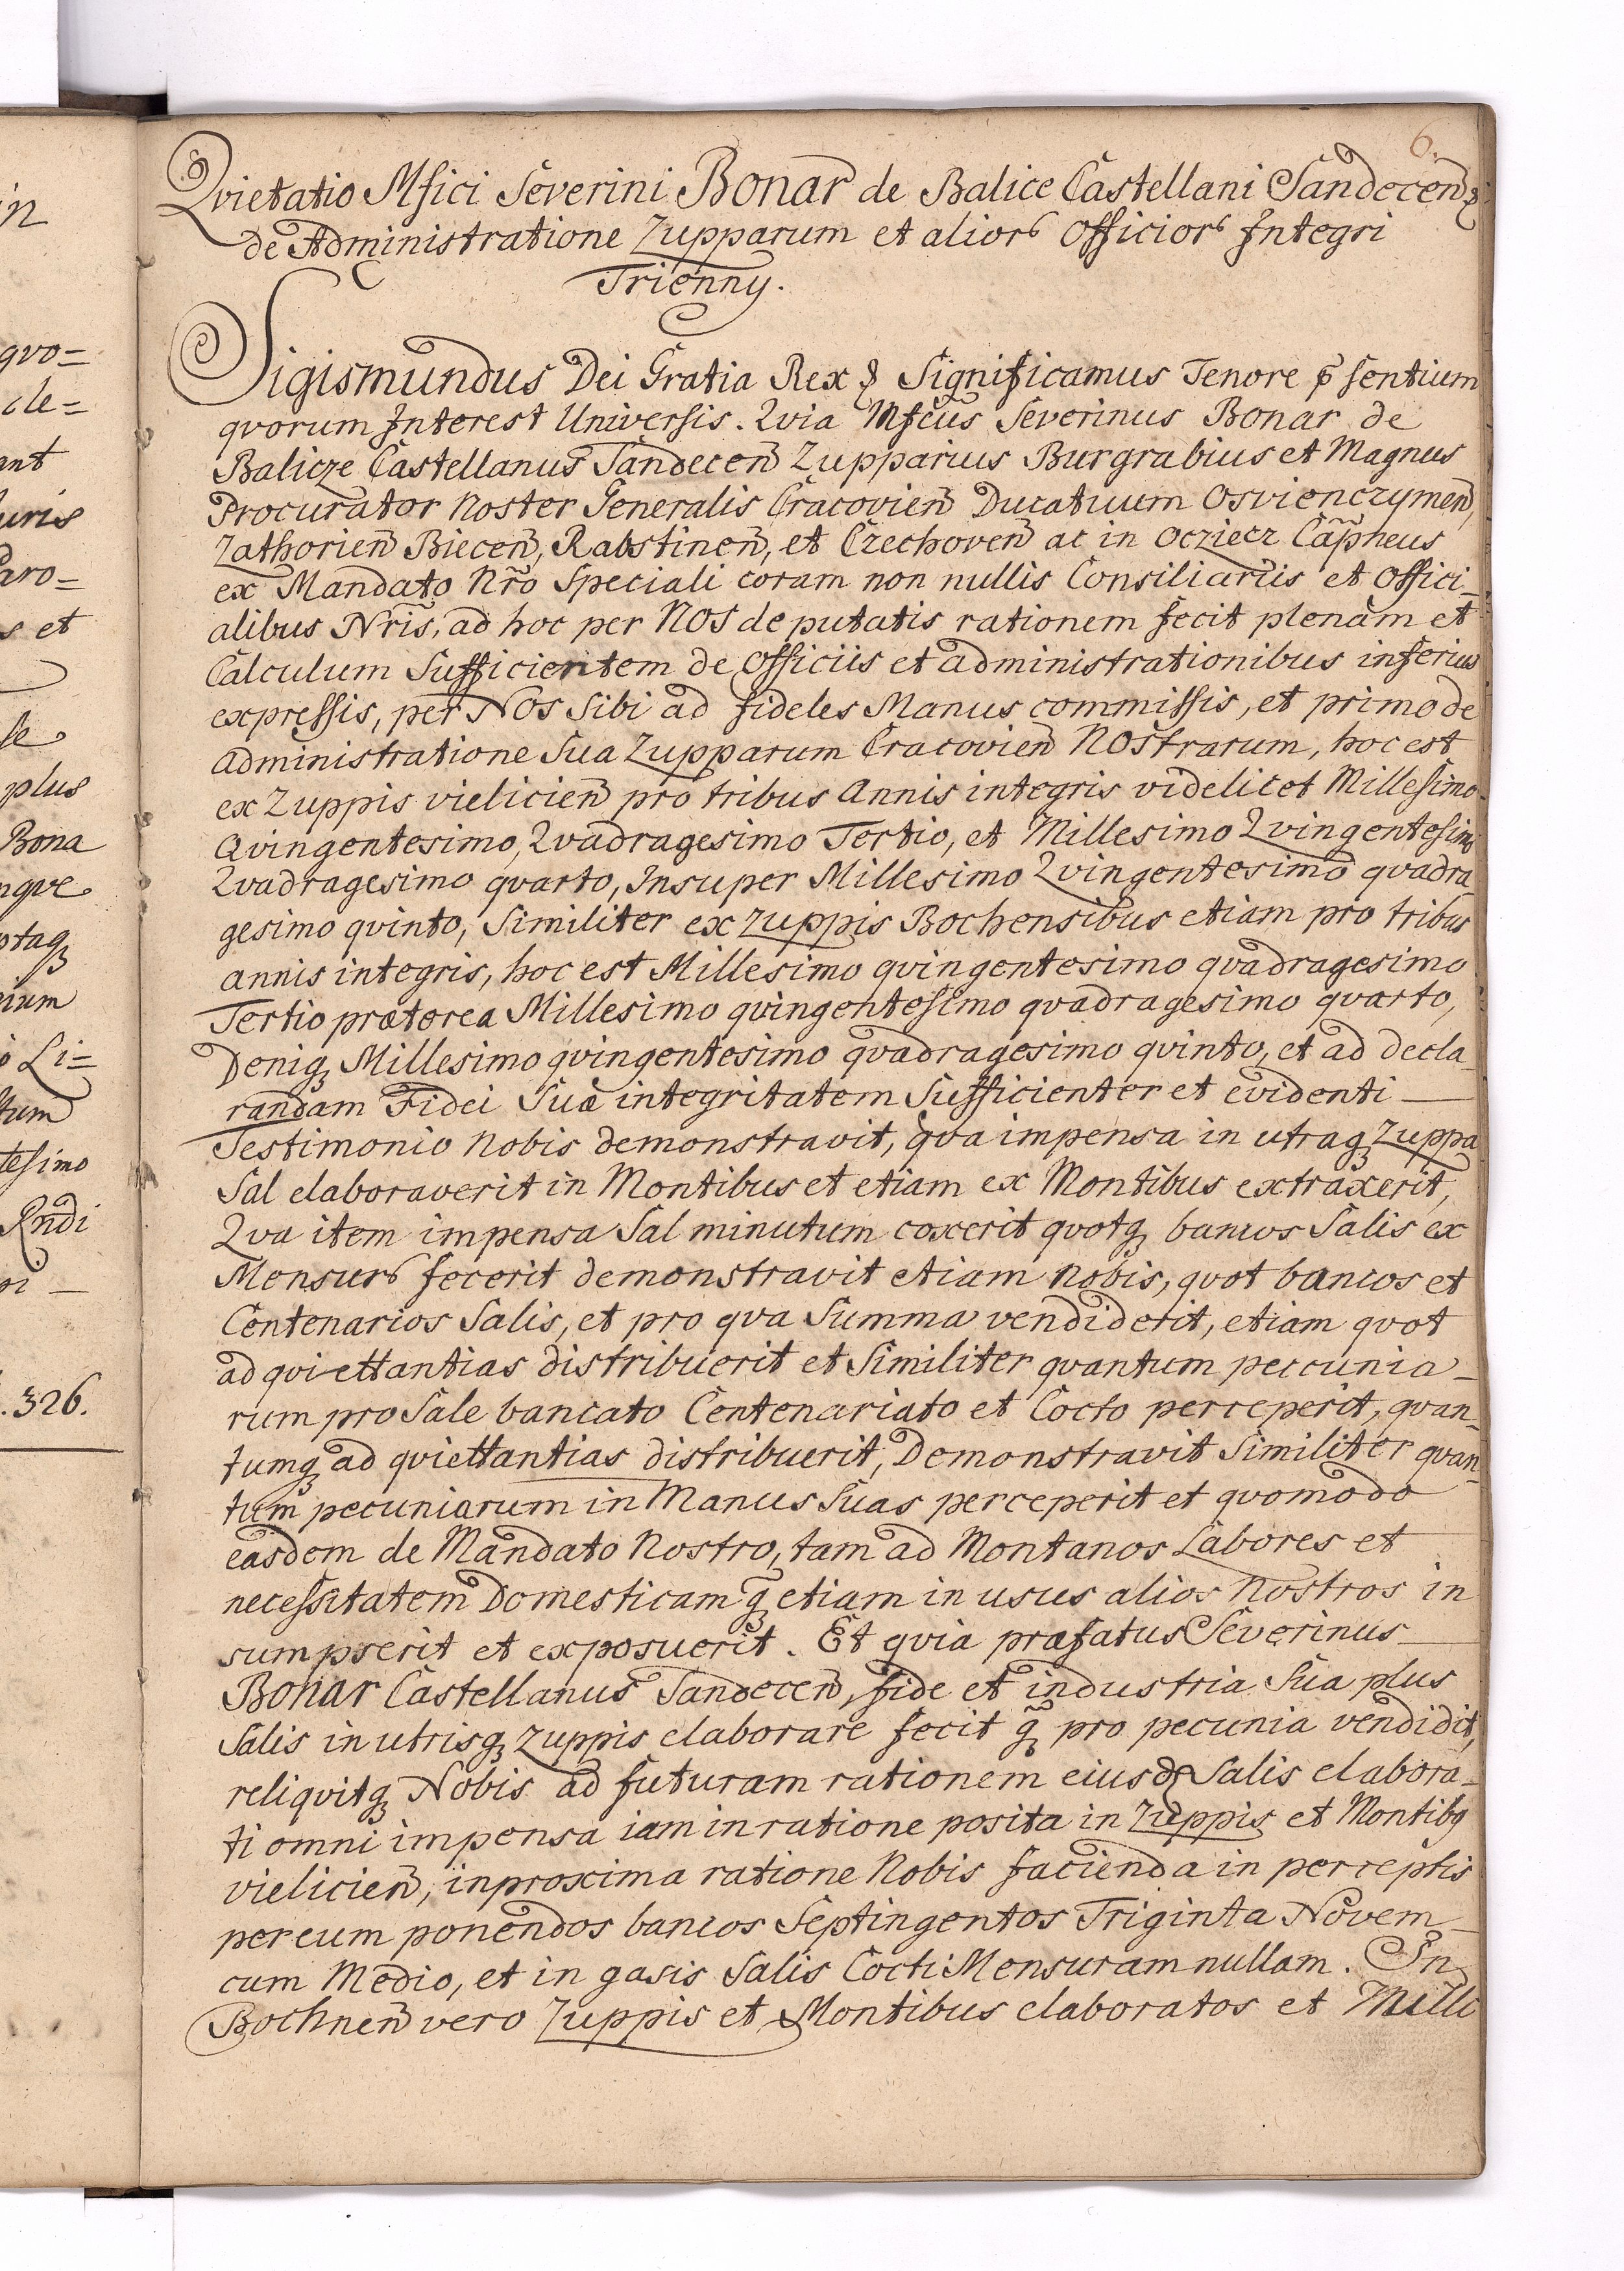 in
qvo=
cle=
ant
uris
aro=
s et
se
plus
Bona
nqve
otaqꝫ
nium
o Li=
tum
tesimo
Rndi
326.
6.
Qvietatio Mfici Severini Bonar de Balice Castellani Sandecen̄
de Administratione Zupparum et alior Officior Integri
Trienny.
Sigismundus Dei Gratia Rex & Significamus Tenore p̄sentium
qvorum Interest Universis. Qvia Mfcus Severinus Bonar de
Balicze Castellanus Sandecen̄ Zupparius Burgrabius et Magnus
Procurator Noster Generalis Cracovien̄ Ducatuum Osvienczymen̄,
Zathorien̄ Biecen̄, Rabstinen̄, et Czechoven̄ ac in Ocziecz Cap̄neus
ex Mandato Nr̄o Speciali coram non nullis Consiliariis et Offici_
alibus Nr̄is, ad hoc per NOS deputatis rationem fecit plenam et
Calculum Sufficientem de Officiis et administrationibus inferius
expressis, per NOs Sibi ad fideles Manus commissis, et primo de
administratione Sua Zupparum Cracovien̄ NOstrarum, hoc est
ex Zuppis vielicien̄ pro tribus Annis integris videlicet Millesimo
Qvingentesimo, Qvadragesimo Tertio, et Millesimo Qvingentesimo
Qvadragesimo qvarto, Insuper Millesimo Qvingentesimo qvadra_
gesimo qvinto, Similiter ex Zuppis Bochensibus etiam pro tribus
annis integris, hoc est Millesimo qvingentesimo qvadragesimo
Tertio præterea Millesimo qvingentesimo qvadragesimo qvarto,
Deniqꝫ Millesimo qvingentesimo qvadragesimo qvinto, et ad decla_
randam Fidei Suæ integritatem Sufficienter et evidenti —
Testimonio Nobis demonstravit, qva impensa in utraqꝫ Zuppa
Sal elaboraverit in Montibus et etiam ex Montibus extraxerit,
Qva item impensa Sal minutum coxerit qvotqꝫ bancos Salis ex
Mensur fecerit demonstravit etiam Nobis, qvot bancos et
Centenarios Salis, et pro qva Summa vendiderit, etiam qvot
ad qviettantias distribuerit et Similiter qvantum peccunia_
rum pro Sale bancato Centenariato et Cocto perceperit, qvan_
tumqꝫ ad qviettantias distribuerit, Demonstravit Similiter qvan_
tum pecuniarum in Manus Suas perceperit et qvomodo
easdem de Mandato Nostro, tam ad Montanos Labores et
necessitatem Domesticam qꝫ̄ etiam in usus alios Nostros in
sumpserit et exposuerit. Et qvia præfatus Severinus —
Bonar Castellanus Sandecen̄, fide et industria Sua plus
Salis in utrisqꝫ Zuppis elaborare fecit qꝫ̄ pro pecunia vendidit,
reliqvitqꝫ Nobis ad futuram rationem eiusd Salis elabora_
ti omni impensa iam in ratione posita in Zuppis et Montibꝫ
vielicien̄, in proxima ratione Nobis facienda in perceptis
per eum ponendos bancos Septingentos Triginta Novem_
cum Medio, et in gasis Salis Cocti Mensuram nullam. In
Bochnen̄ vero Zuppis et Montibus elaboratos et Mille